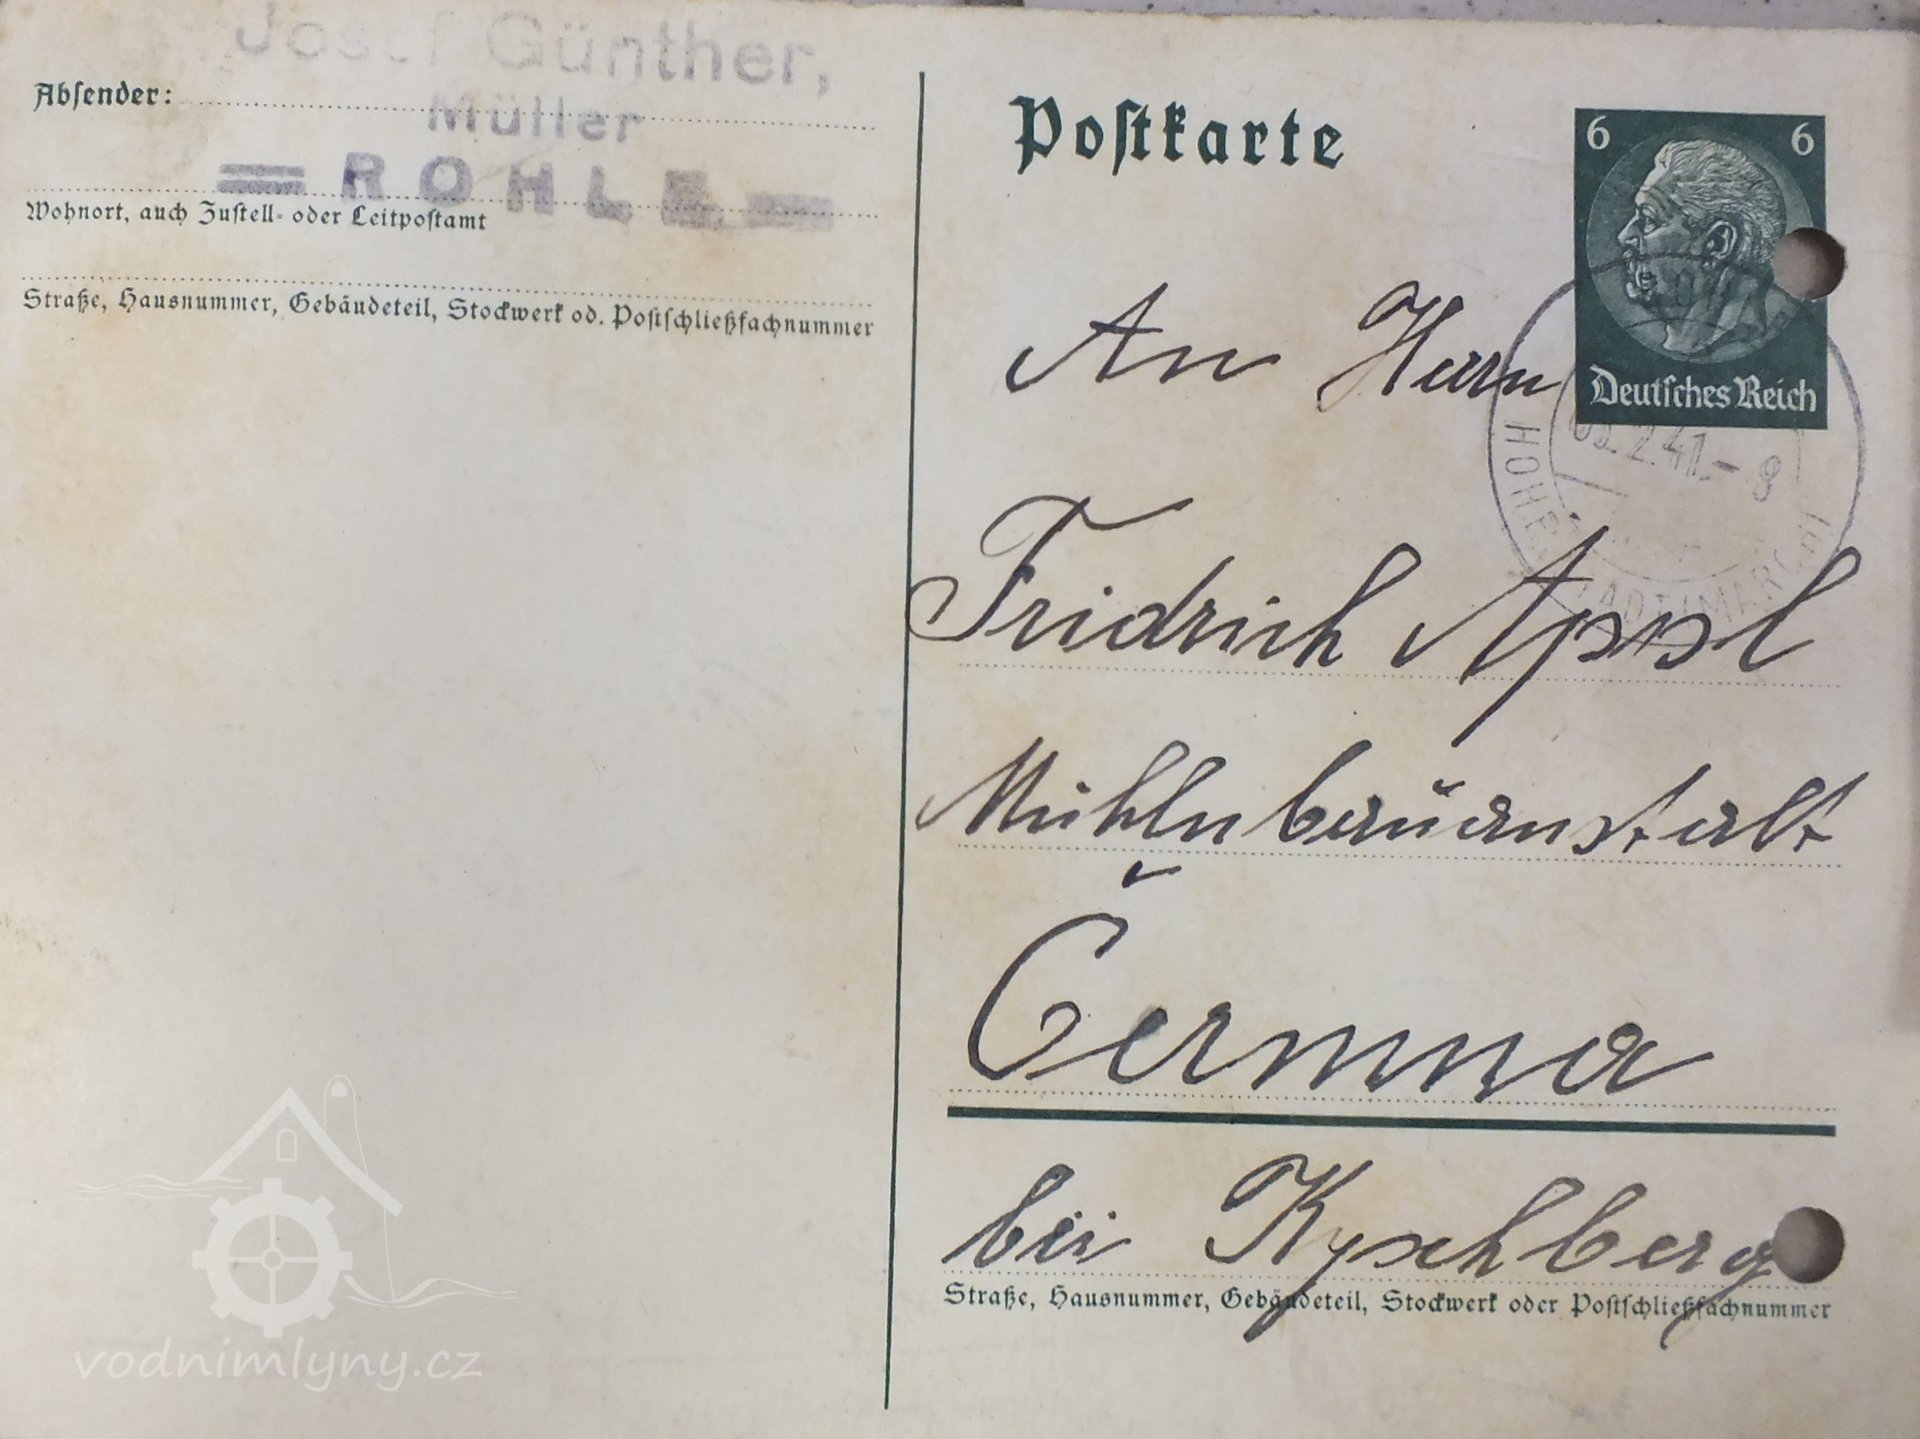 Josef Günther,
Müller
ROHLE
Absender:
Wohnort, auch Zustell- oder Leitpostamt
Straße, Hausnummer, Gebäudeteil, Stockwerk od. Postschließfachnummer
Postkarte
6 6
Deutsches Reich
2.41.-8
HOHENSTADT (MARCH)
An Herrn
Fridrich Appl
Mühlnbauanstalt
Čermna
bei Kyschberg
Straße, Hausnummer, Gebäudeteil, Stockwerk oder Postschließfachnummer
vodnimlyny.cz